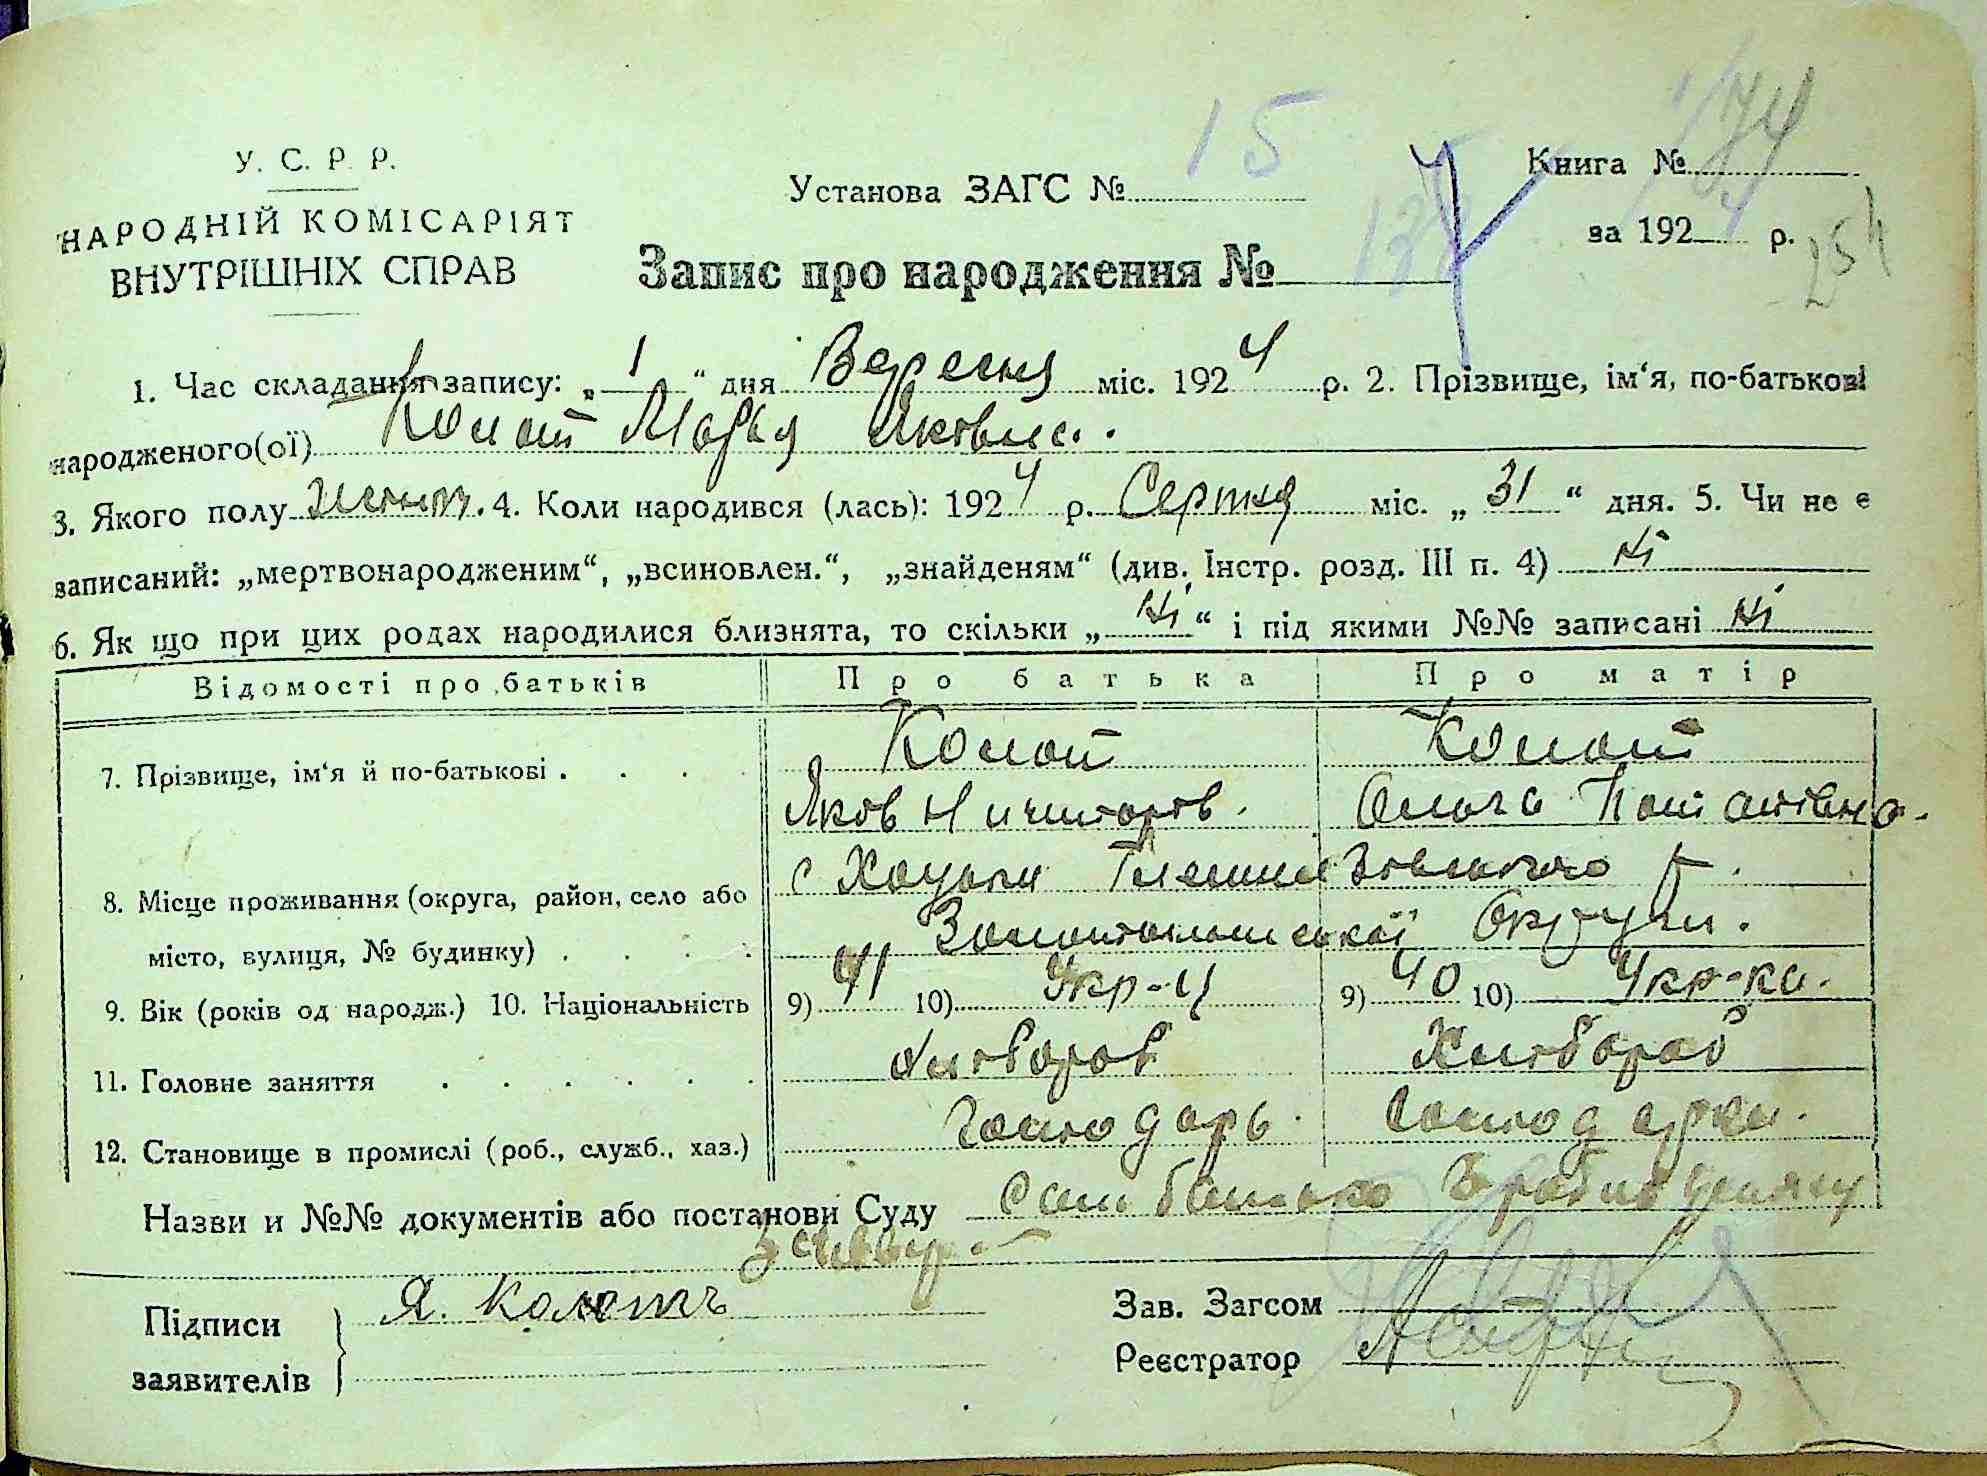 У. С. Р. Р.
НАРОДНІЙ КОМІСАРІЯТ
ВНУТРІШНІХ СПРАВ
Установа ЗАГС № 15
Книга № 
за 1924 р.
254
Запис про народження №
1. Час складання запису: „1“ дня Вересня міс. 1924 р. 2. Прізвище, ім‘я, по-батькові
народженого(ої) Колот Марья Яковл.
3. Якого полу женск. 4. Коли народився (лась): 1924 р. Серпня міс. „31“ дня. 5. Чи не є
записаний: „мертвонародженим“, „всиновлен.“, „знайденям“ (див. Інстр. розд. III п. 4) Ні
6. Як що при цих родах народилися близнята, то скільки „Ні“ і під якими №№ записані Ні
Відомості про батьків Про батька Про матір
7. Прізвище, ім‘я й по-батькові . . . . Колот Колот
Яков Ничипоров. Ольга Потапівна.
8. Місце проживання (округа, район, село або с Хоцьки
місто, вулиця, № будинку) . . . . Округи.
9. Вік (років од народж.) 10. Національність 9) 41 10) Укр-ц 9) 40 10) Укр-ка.
11. Головне заняття . . . . . . Хлібороб Хлібороб
12. Становище в промислі (роб., служб., хаз.) Господарь. Господарка.
Назви и №№ документів або постанови Суду Сам батько зробив заяву
Підписи
заявителів
Я. Колотъ
Зав. Загсом
Реєстратор